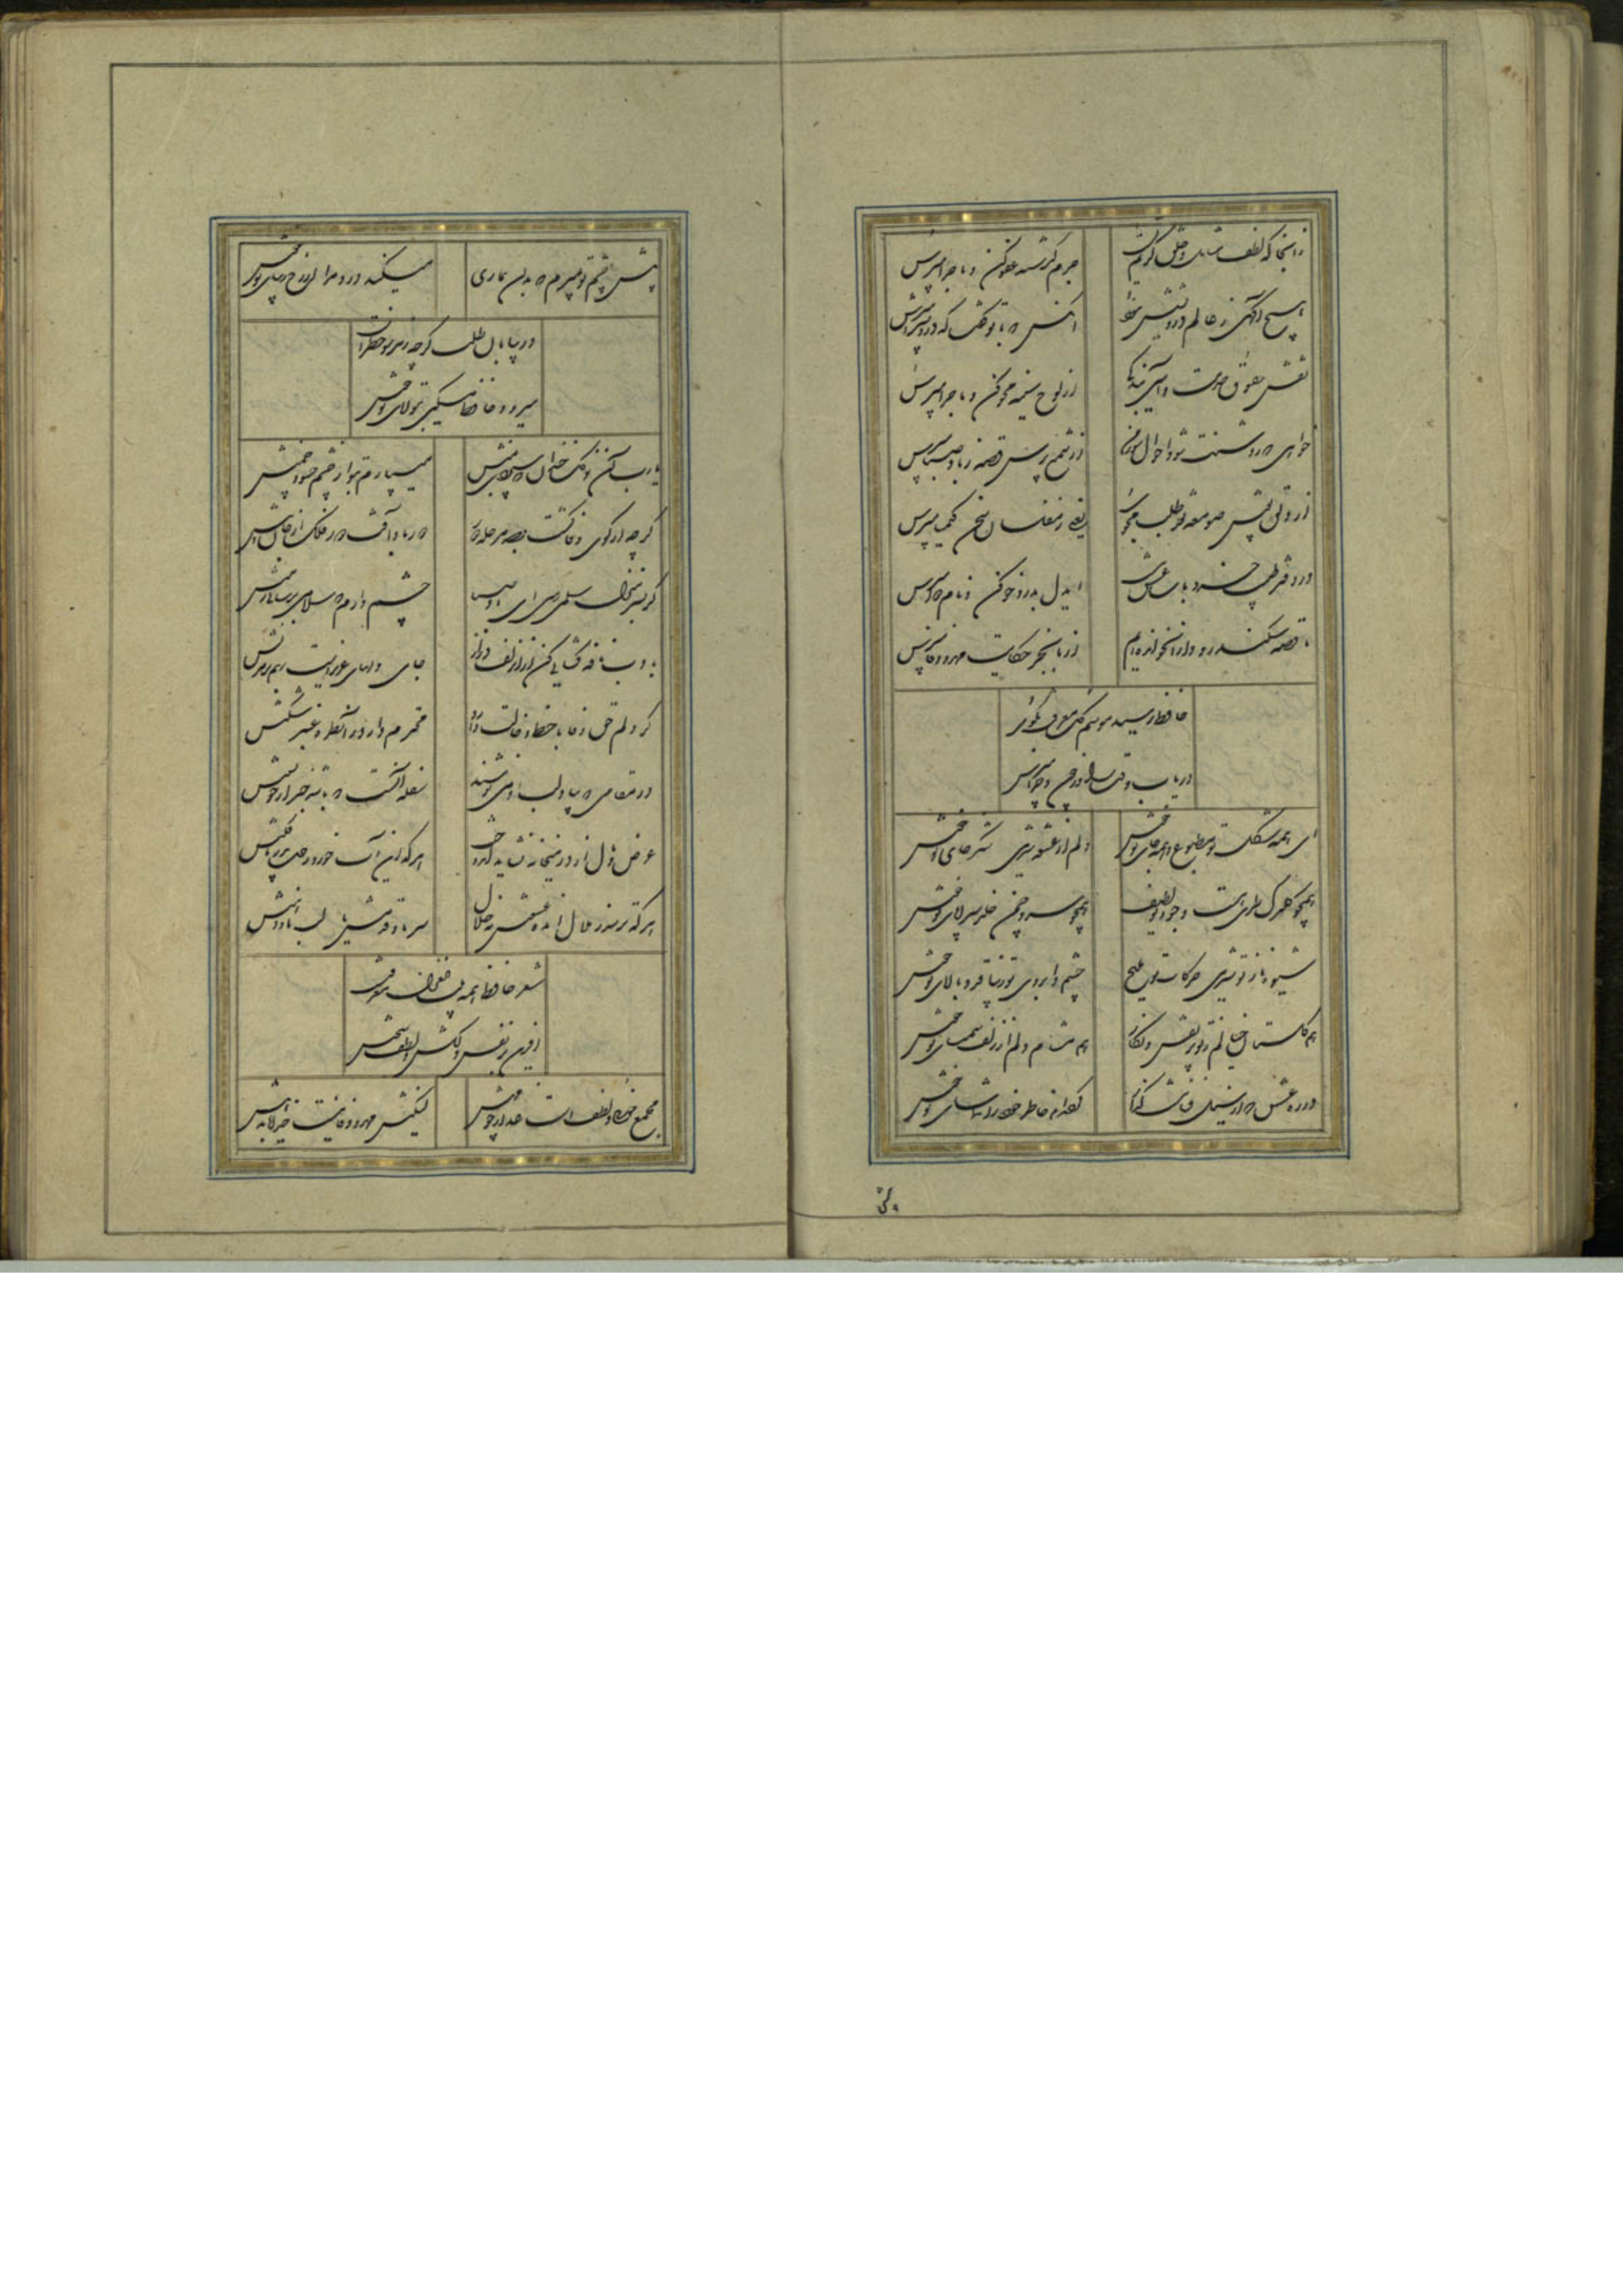 زانجا که لطف شامل و خلق کریم تست
جرم گذشته عفو کن و ماجرا مپرس
هیچ آگهی ز عالم درویشیش نبود
آنکس که با تو گفت که درویش را مپرس
نقش حقوق صحبت و اخلاص بندگی
از لوح سینه محو کن و ماجرا مپرس
خواهی که روشنت شود احوال سوز من
از شمع پرس قصه ز باد صبا مپرس
از دلق پوش صومعه نقد طلب مجوی
یعنی ز مفلسان سخن کیمیا مپرس
در دفتر طبیب خرد باب عشق نیست
ای دل بدرد خو کن و نام دوا مپرس
ما قصه سکندر و دارا نخوانده ایم
از ما بجز حکایت مهر و وفا مپرس
حافظ رسید موسم گل معرفت مگوی
دریاب وقت و از چون و چرا مپرس
ای همه شکل تو مطبوع و همه جای تو خوش
دلم از عشوه شیرین شکرخای تو خوش
همچو گلبرگ طری هست وجود تو لطیف
همچو سرو چمن خلد سراپای تو خوش
شیوه و ناز تو شیرین حرکات تو ملیح
چشم و ابروی تو زیبا قد و بالای تو خوش
هم گلستان خیالم ز تو پر نقش و نگار
هم مشام دلم از زلف سمن سای تو خوش
در ره عشق که از سیل فنا نیست گذار
کرده ام خاطر خود را به تمنای تو خوش
پیش چشم تو بمیرم که بدان بیماری
میکند درد مرا از رخ زیبای تو خوش
در بیابان طلب گرچه ز هر سو خطریست
میرود حافظ مسکین بتولای تو خوش
یا رب آن نوگل خندان که سپردی بمنش
میسپارم بتو از چشم حسود چمنش
گرچه از کوی وفا گشت بصد مرحله دور
دور باد آفت دور فلک از جان و تنش
گر بسرمنزل سلمی رسی ای باد صبا
چشم دارم که سلامی برسانی ز منش
بادب نافه گشایی کن از آن زلف دراز
جای دلهای عزیزست بهم بر مزنش
گو دلم حق وفا با خط و خالت دارد
محترم دار در آن طره عنبر شکنش
در مقامی که بیاد لب او می نوشند
سفله آنست که باشد خبر از خویشتنش
عرض و مال از در میخانه نشاید اندوخت
هر که این آب خورد رخت بدریا فکنش
هر که ترسد ز ملال انده عشقش نه حلال
سر ما و قدمش یا لب ما و دهنش
شعر حافظ همه بیت الغزل معرفتست
آفرین بر نفس دلکش و لطف سخنش
مجمع خوبی و لطفست عذار چو مهش
لیکنش مهر و وفا نیست خدایا بدهش